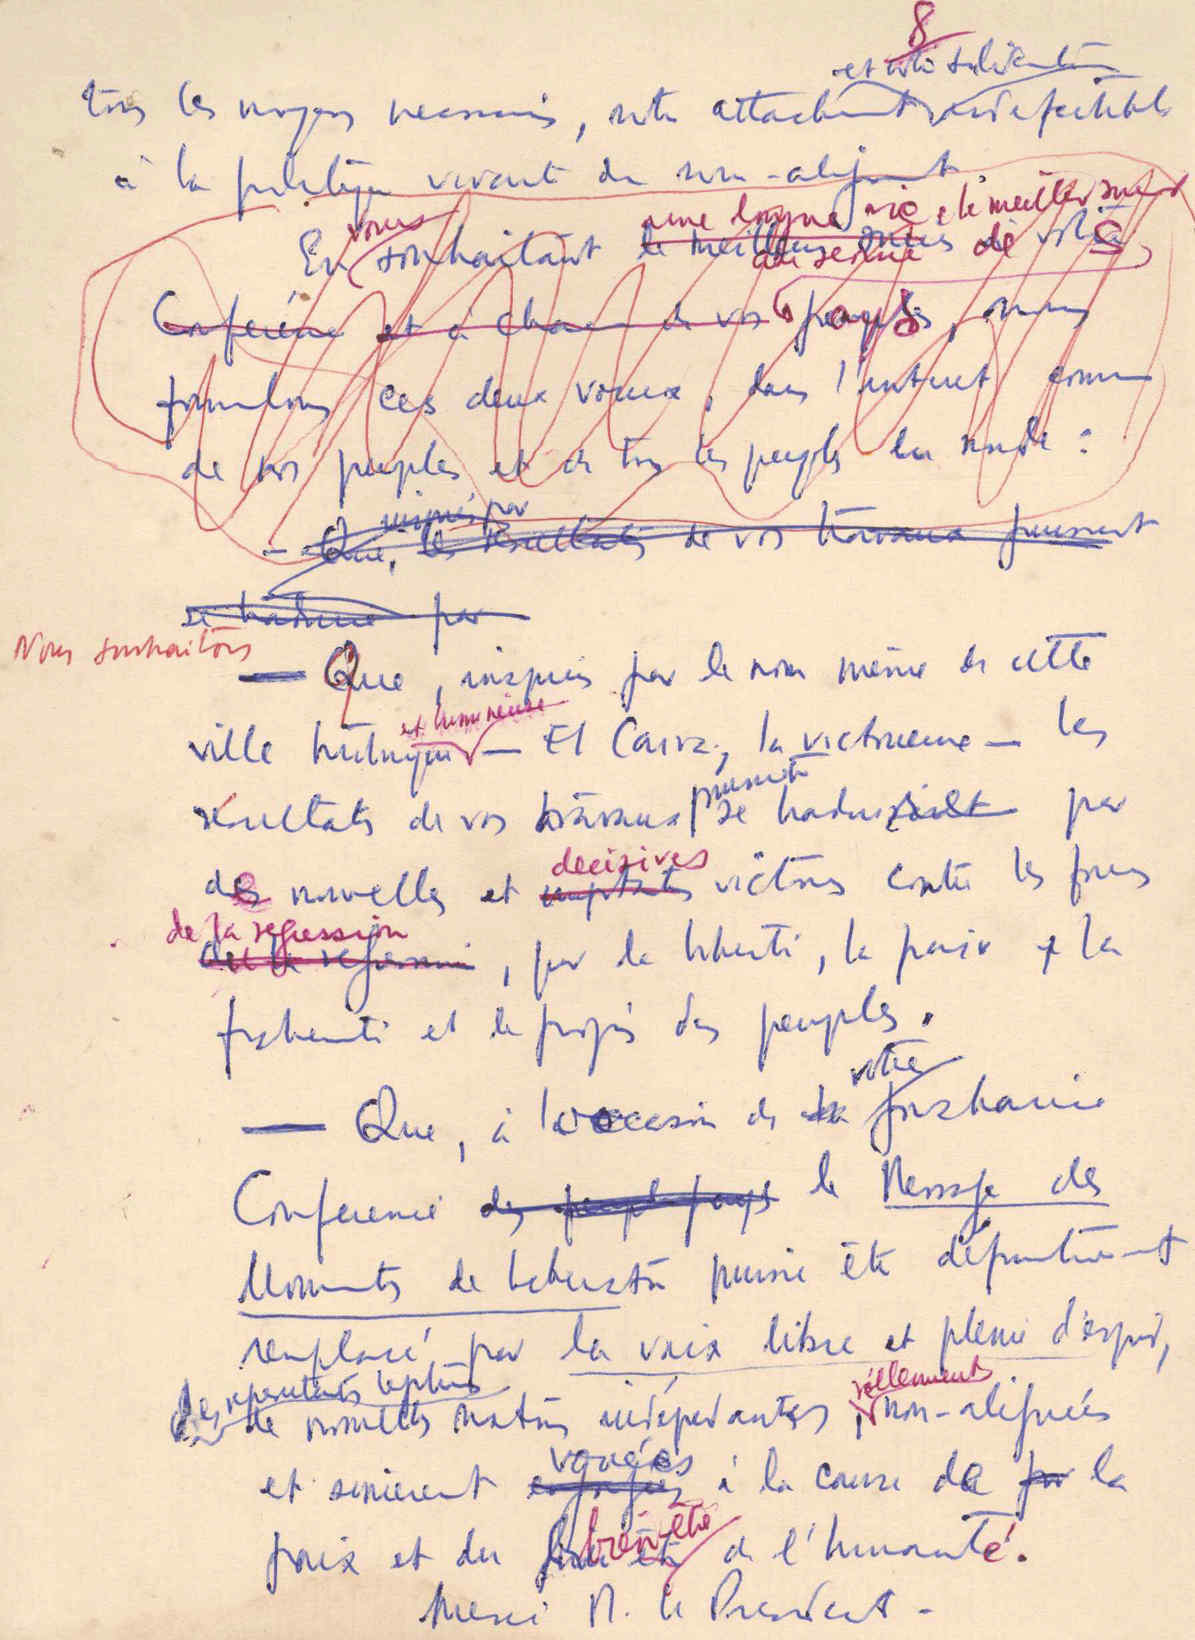 8
et notre solidarité
tous les moyens necessaires, notre attachement indefectible
à la politique vivante du non-alignement
vous une longue vie et le meilleur succès
En souhaitant le meilleur succès de votre
au service de
Conférence et à chacun de vos pays, nous
formulons ces deux voeux, dans l'interet commun
de nos peuples et de tous les peuples du monde :
inspirés par
- Que, les résultats de vos travaux puissent
se traduire par
Nous souhaitons
— Que, inspirés par le nom même de cette
et lumineuse
ville historique — El Caire, la victorieuse — les
puissent
résultats de vos travaux se traduisent par
decisives
des nouvelles et importantes victoires contre les forces
de la regression
de la regression, pour la liberté, la paix et la
fraternité et le progrès des peuples.
votre
— Que, à l'occasion de la prochaine
Conference des pays le Message des
Mouvements de liberation puisse être définitivement
remplacé par la voix libre et pleine d'espoir,
des representants legitimes réellement
de nouvelles nations indépendantes, non-alignées
vouées
et sincerement engagées à la cause de la
bien-être
paix et du de l'humanité.
Merci M. le President -